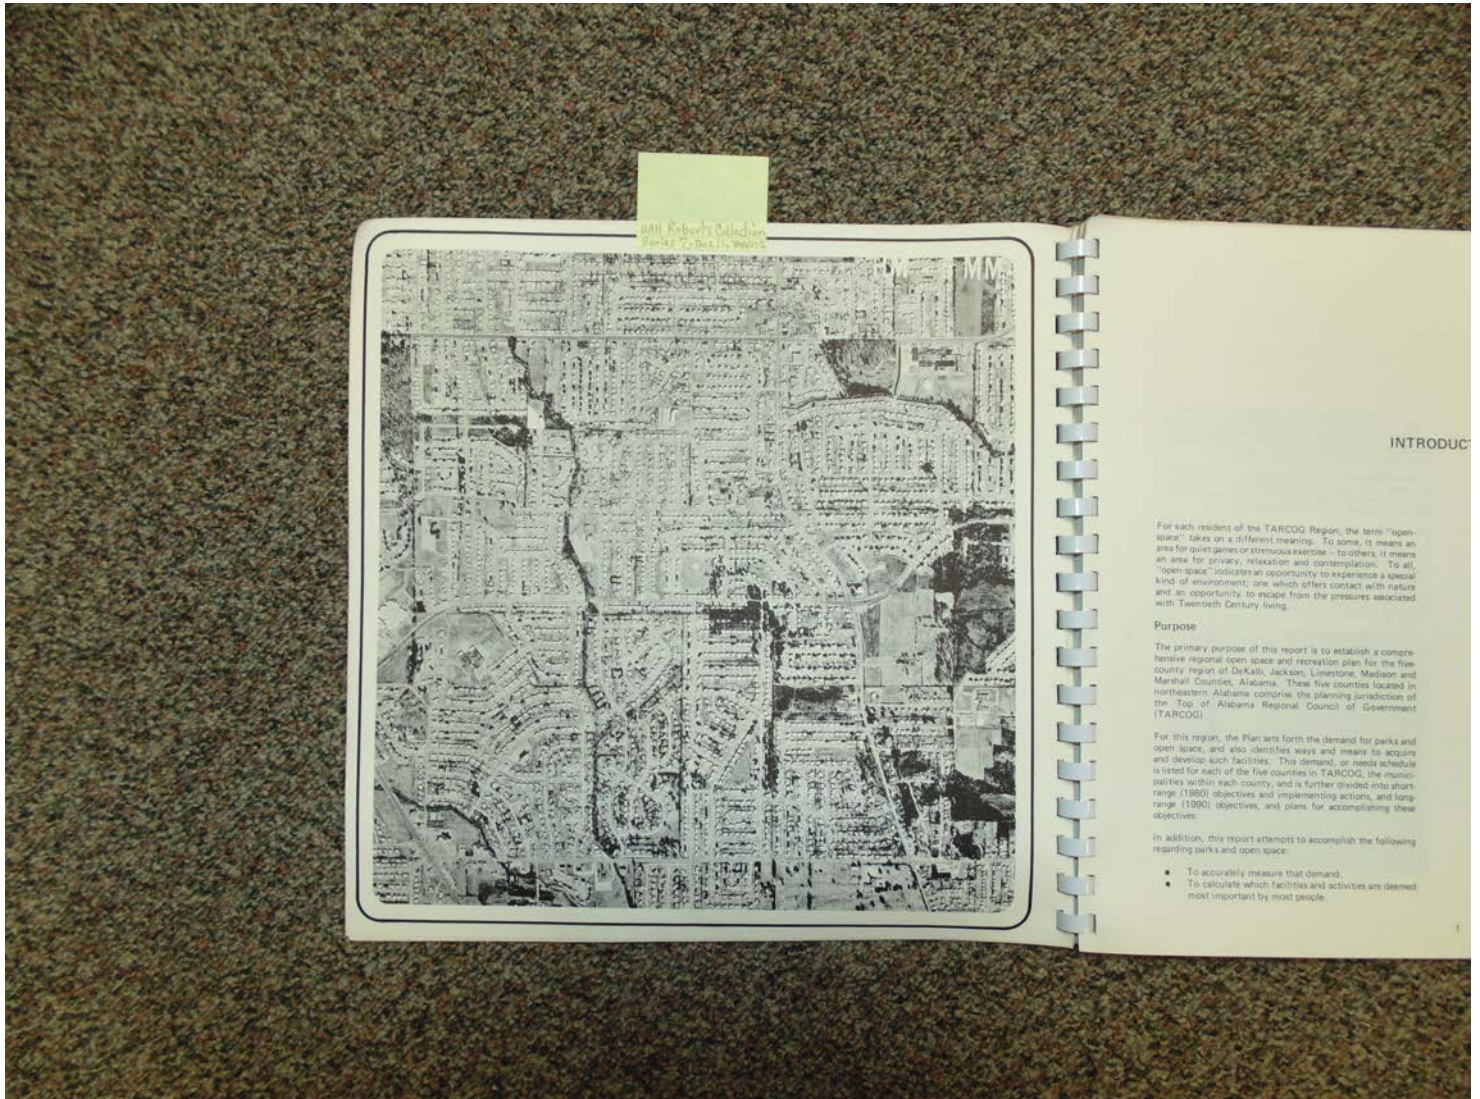 UAH Roberts Collection
Series 7, Box 11,
MM
INTRODUCT
For each resident of the TARCOG Region, the term "open-
space" takes on a different meaning. To some, it means an
area for quiet games or strenuous exercise – to others, it means
an area for privacy, relaxation and contemplation. To all,
"open-space" indicates an opportunity to experience a special
kind of environment; one which offers contact with nature
and an opportunity to escape from the pressures associated
with Twentieth Century living.
Purpose
The primary purpose of this report is to establish a compre-
hensive regional open space and recreation plan for the five-
county region of DeKalb, Jackson, Limestone, Madison and
Marshall Counties, Alabama. These five counties located in
northeastern Alabama comprise the planning jurisdiction of
the Top of Alabama Regional Council of Government
(TARCOG).
For this region, the Plan sets forth the demand for parks and
open space, and also identifies ways and means to acquire
and develop such facilities. This demand, or needs schedule
is listed for each of the five counties in TARCOG, the munici-
palities within each county, and is further divided into short-
range (1980) objectives and implementing actions, and long-
range (1990) objectives, and plans for accomplishing these
objectives.
In addition, this report attempts to accomplish the following
regarding parks and open space:
• To accurately measure that demand.
• To calculate which facilities and activities are deemed
most important by most people.
1